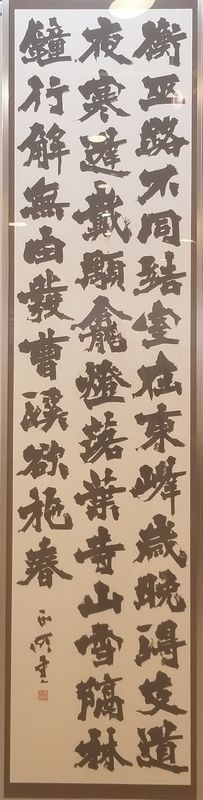 衡巫路不同結室在東峰歳晩得支道
夜寒逢戴顒龕燈落葉寺山雪隔林
鐘行解無由發曹溪欲施舂